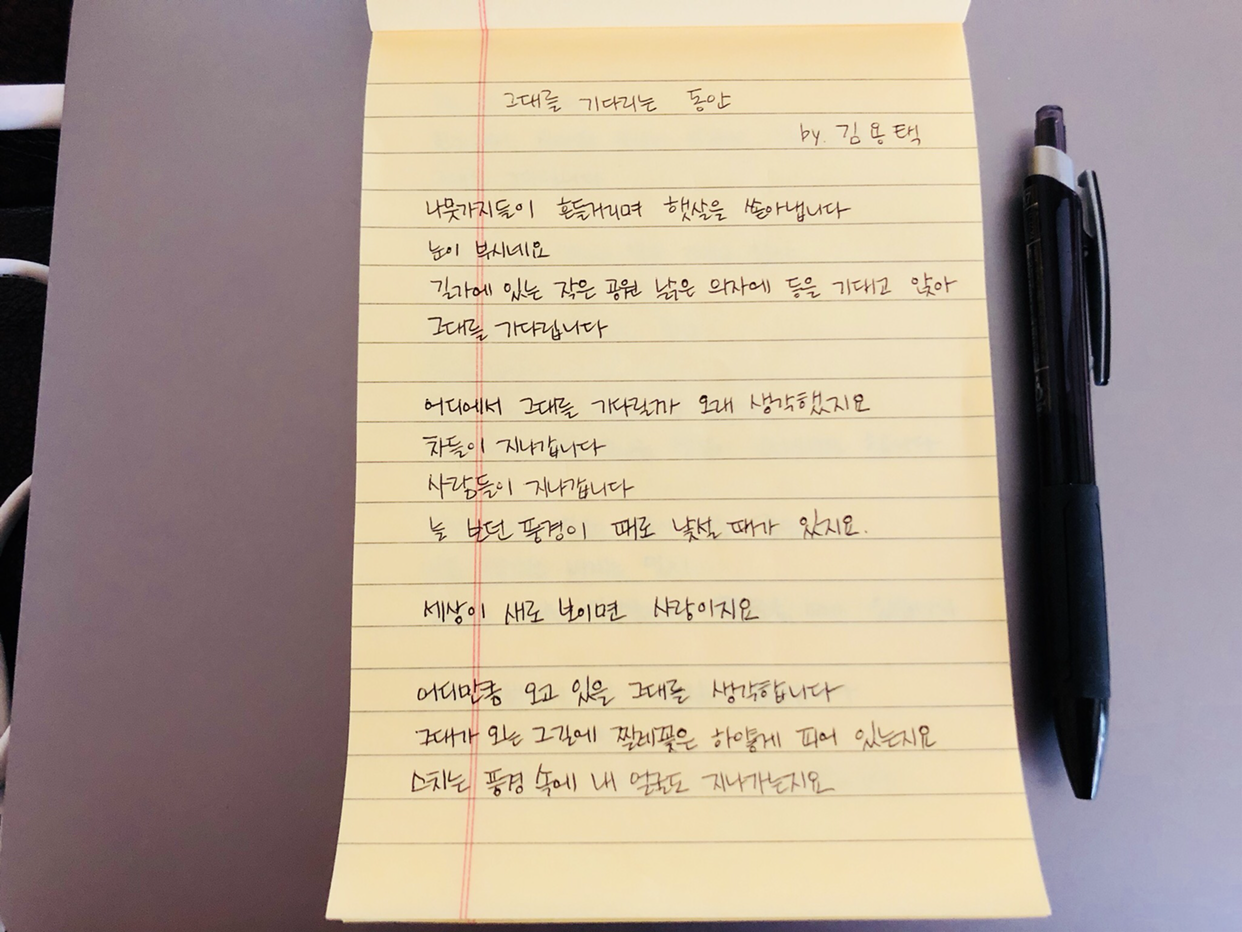 그대를 기다리는 동안
by. 김용택
나뭇가지들이 흔들거리며 햇살을 쏟아냅니다
눈이 부시네요
길가에 있는 작은 공원 낡은 의자에 등을 기대고 앉아
그대를 기다립니다
어디에서 그대를 기다릴까 오래 생각했지요
차들이 지나갑니다
사람들이 지나갑니다
늘 보던 풍경이 때로 낯설 때가 있지요.
세상이 새로 보이면 사랑이지요
어디만큼 오고 있을 그대를 생각합니다
그대가 오는 그길에 찔레꽃은 하얗게 피어 있는지요
스치는 풍경 속에 내 얼굴도 지나가는지요